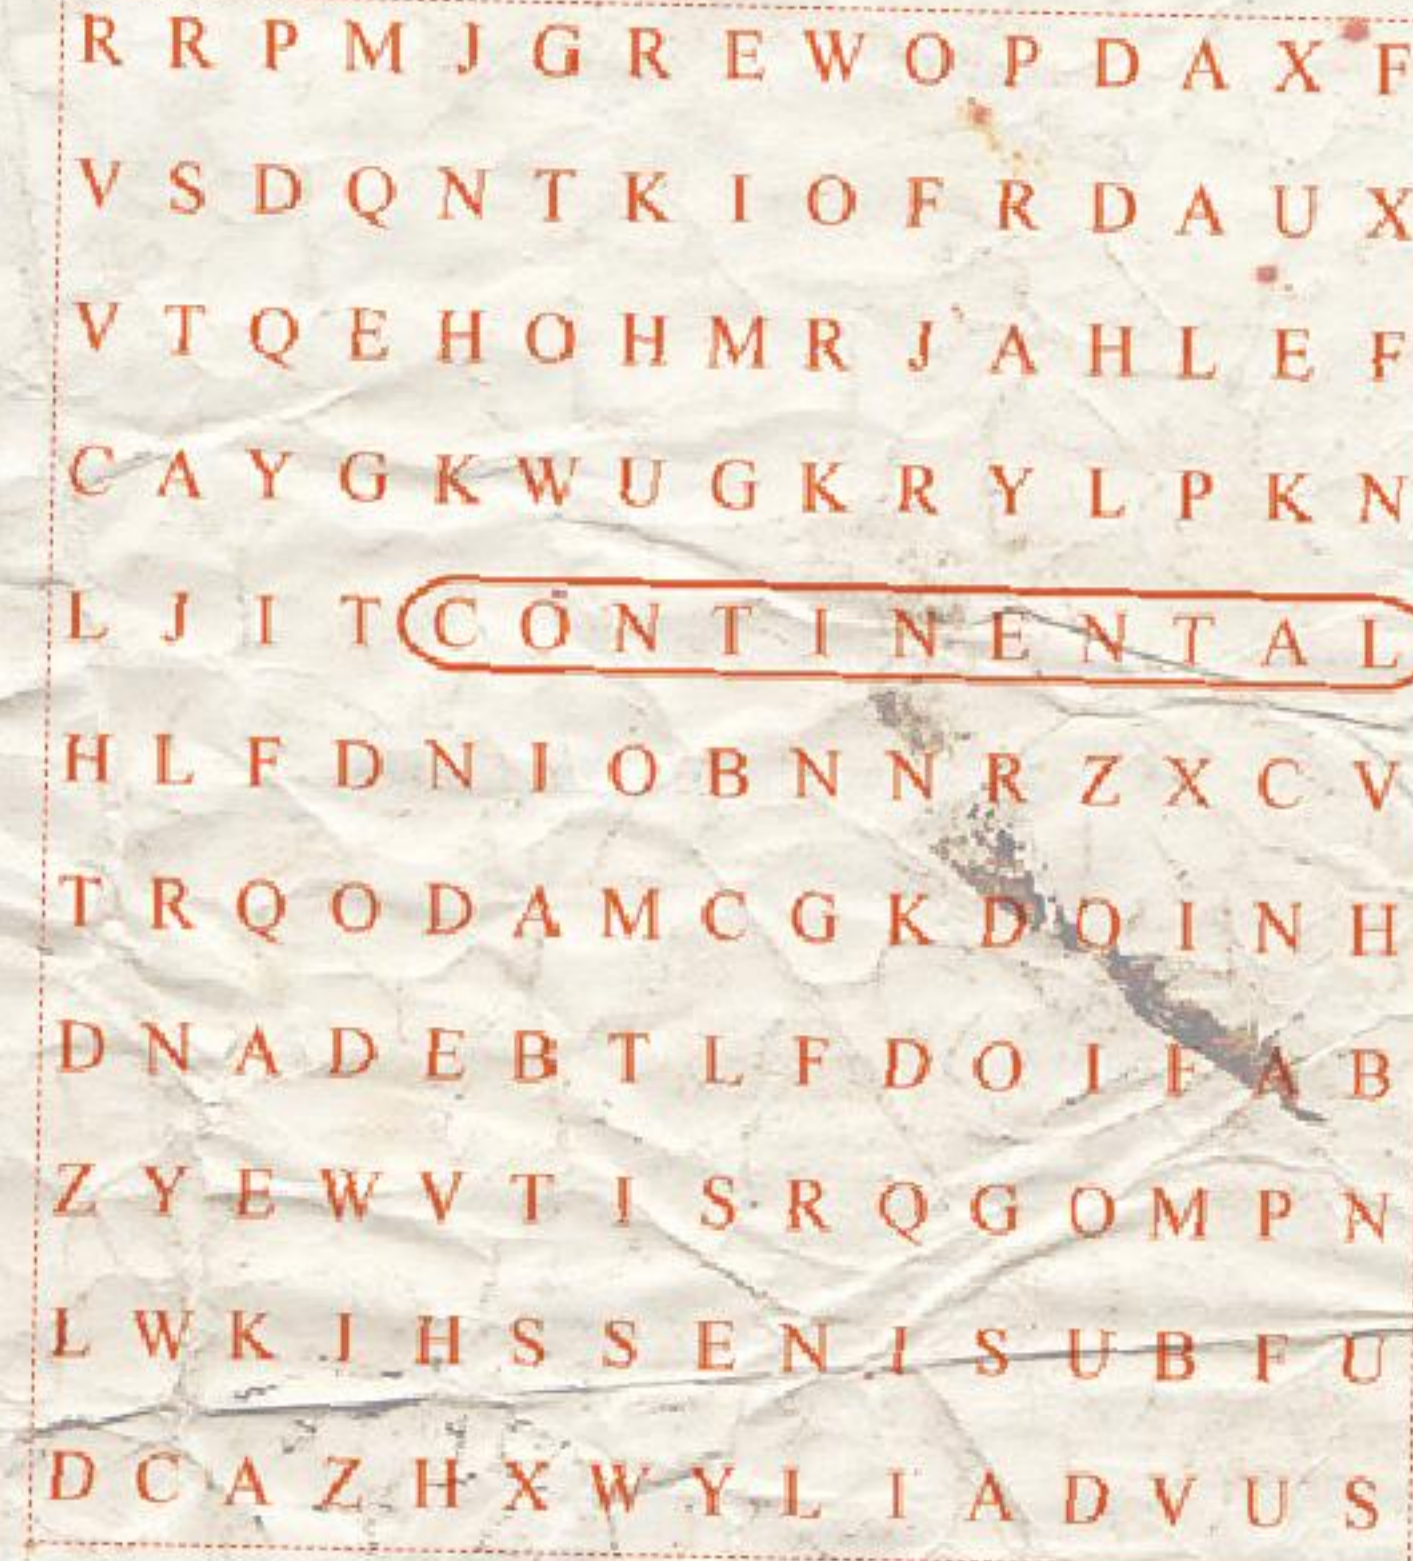 R R P M J G R E W O P D A X F
V S D Q N T K I O F R D A U X
V T Q E H O H M R J A H L E F
C A Y G K W U G K R Y L P K N
L J I T C O N T I N E N T A L
H L F D N I O B N N R Z X C V
T R Q O D A M C G K D O I N H
D N A D E B T L F D O I F A B
Z Y E W V T I S R Q G O M P N
L W K J H S S E N I S U B F U
D C A Z H X W Y L I A D V U S